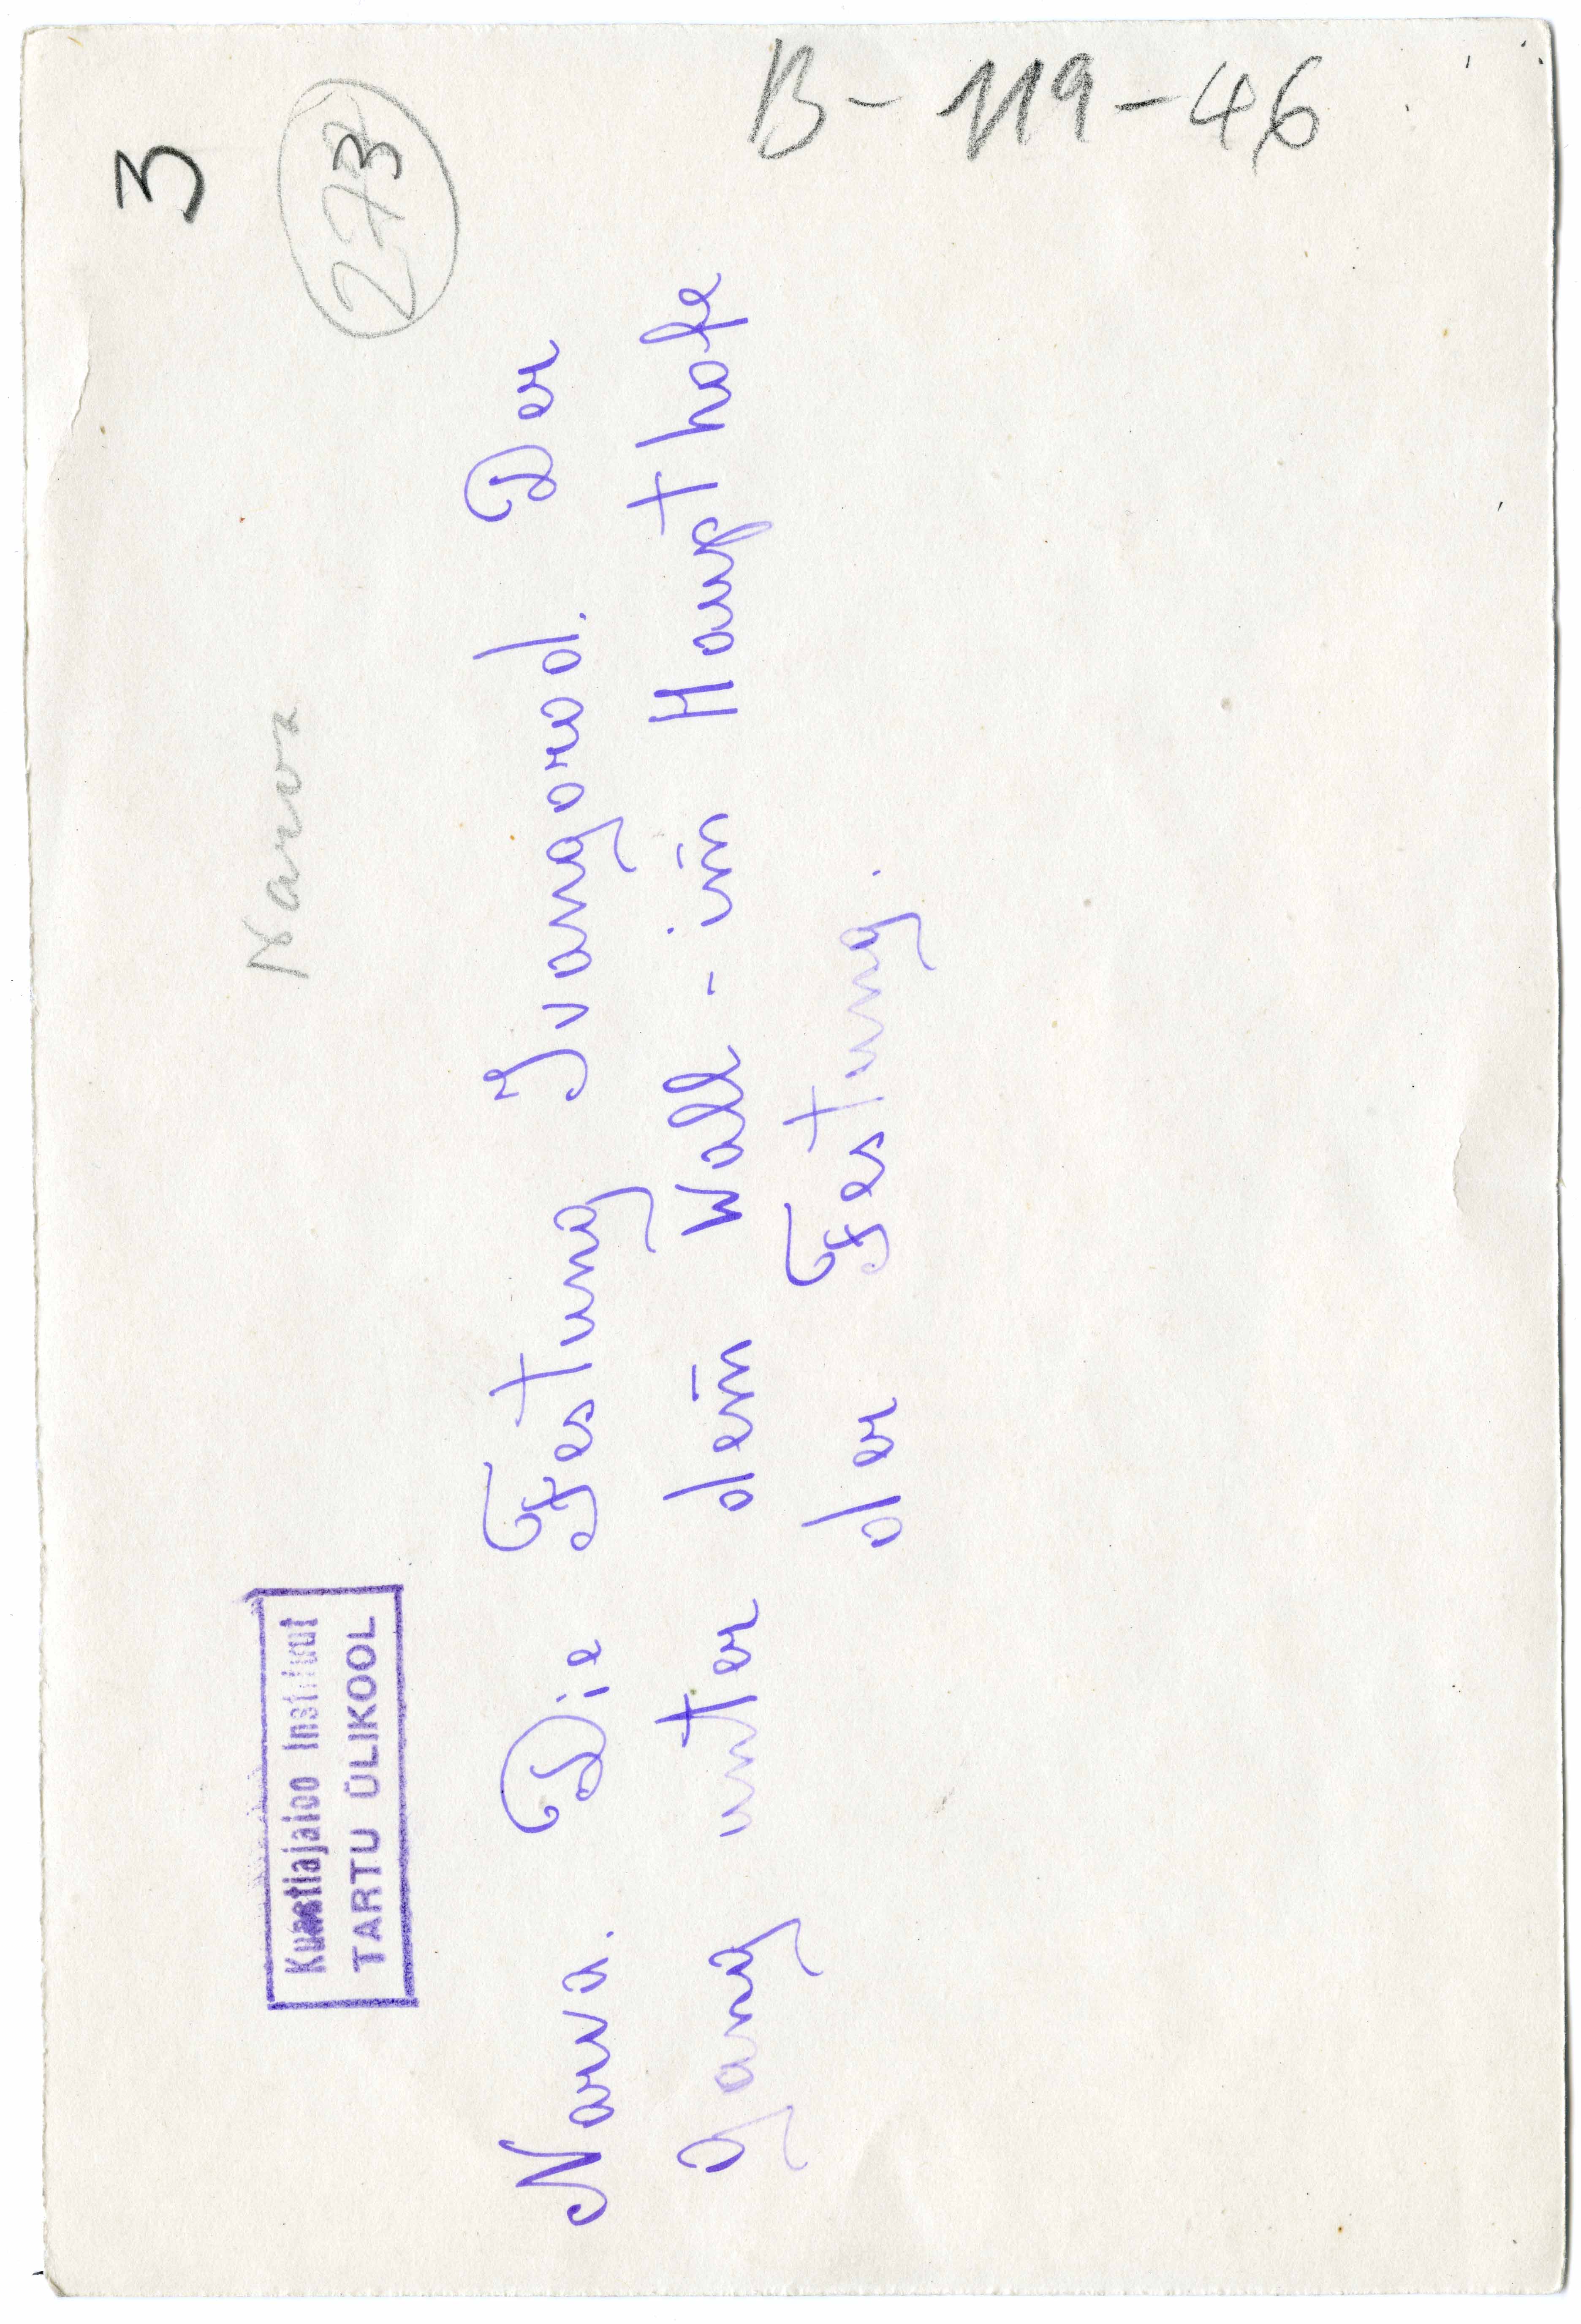 B-119-46
3
273
Narva
Kunstiajaloo Instituut
TARTU ÜLIKOOL
Narva. Die Festung Ivangorod. Der
gang unter dem̄ Wall - im̄ Haupthofe
der Festung.